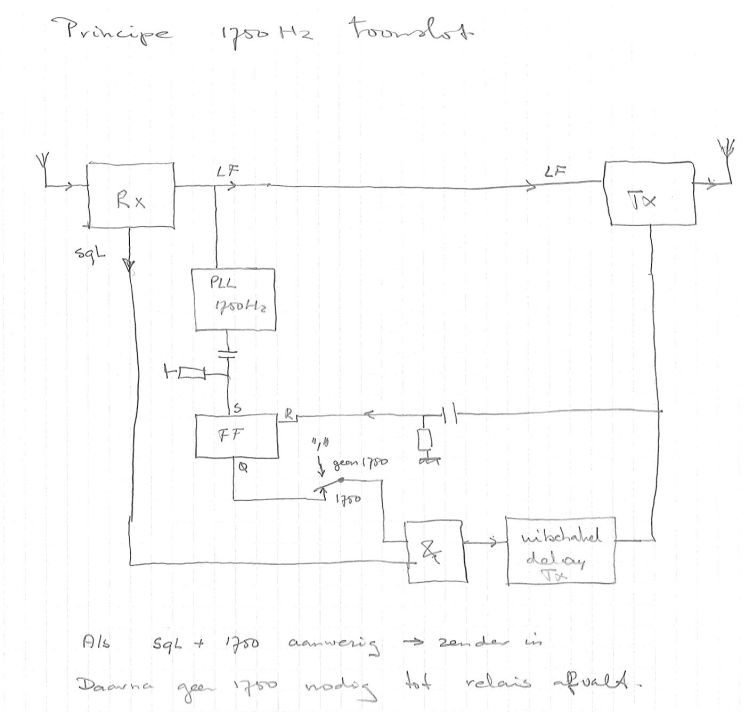 Principe 1750 Hz toonslot
LF
LF
Rx
Tx
SQL
PLL
1750Hz
S
R
FF
Q
"1"
geen 1750
1750
&
uitschakel
delay
Tx
Als SQL + 1750 aanwezig → zender in
Daarna geen 1750 nodig tot relais afvalt.